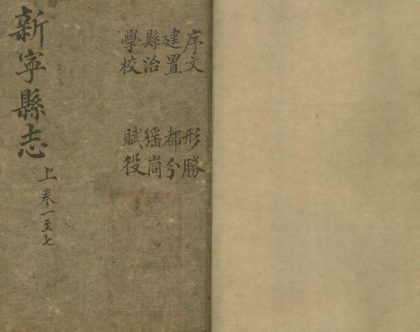 序文　形勝
建置　都分
縣治　猺峝
學校　賦役
新寧縣志　上　卷一至七